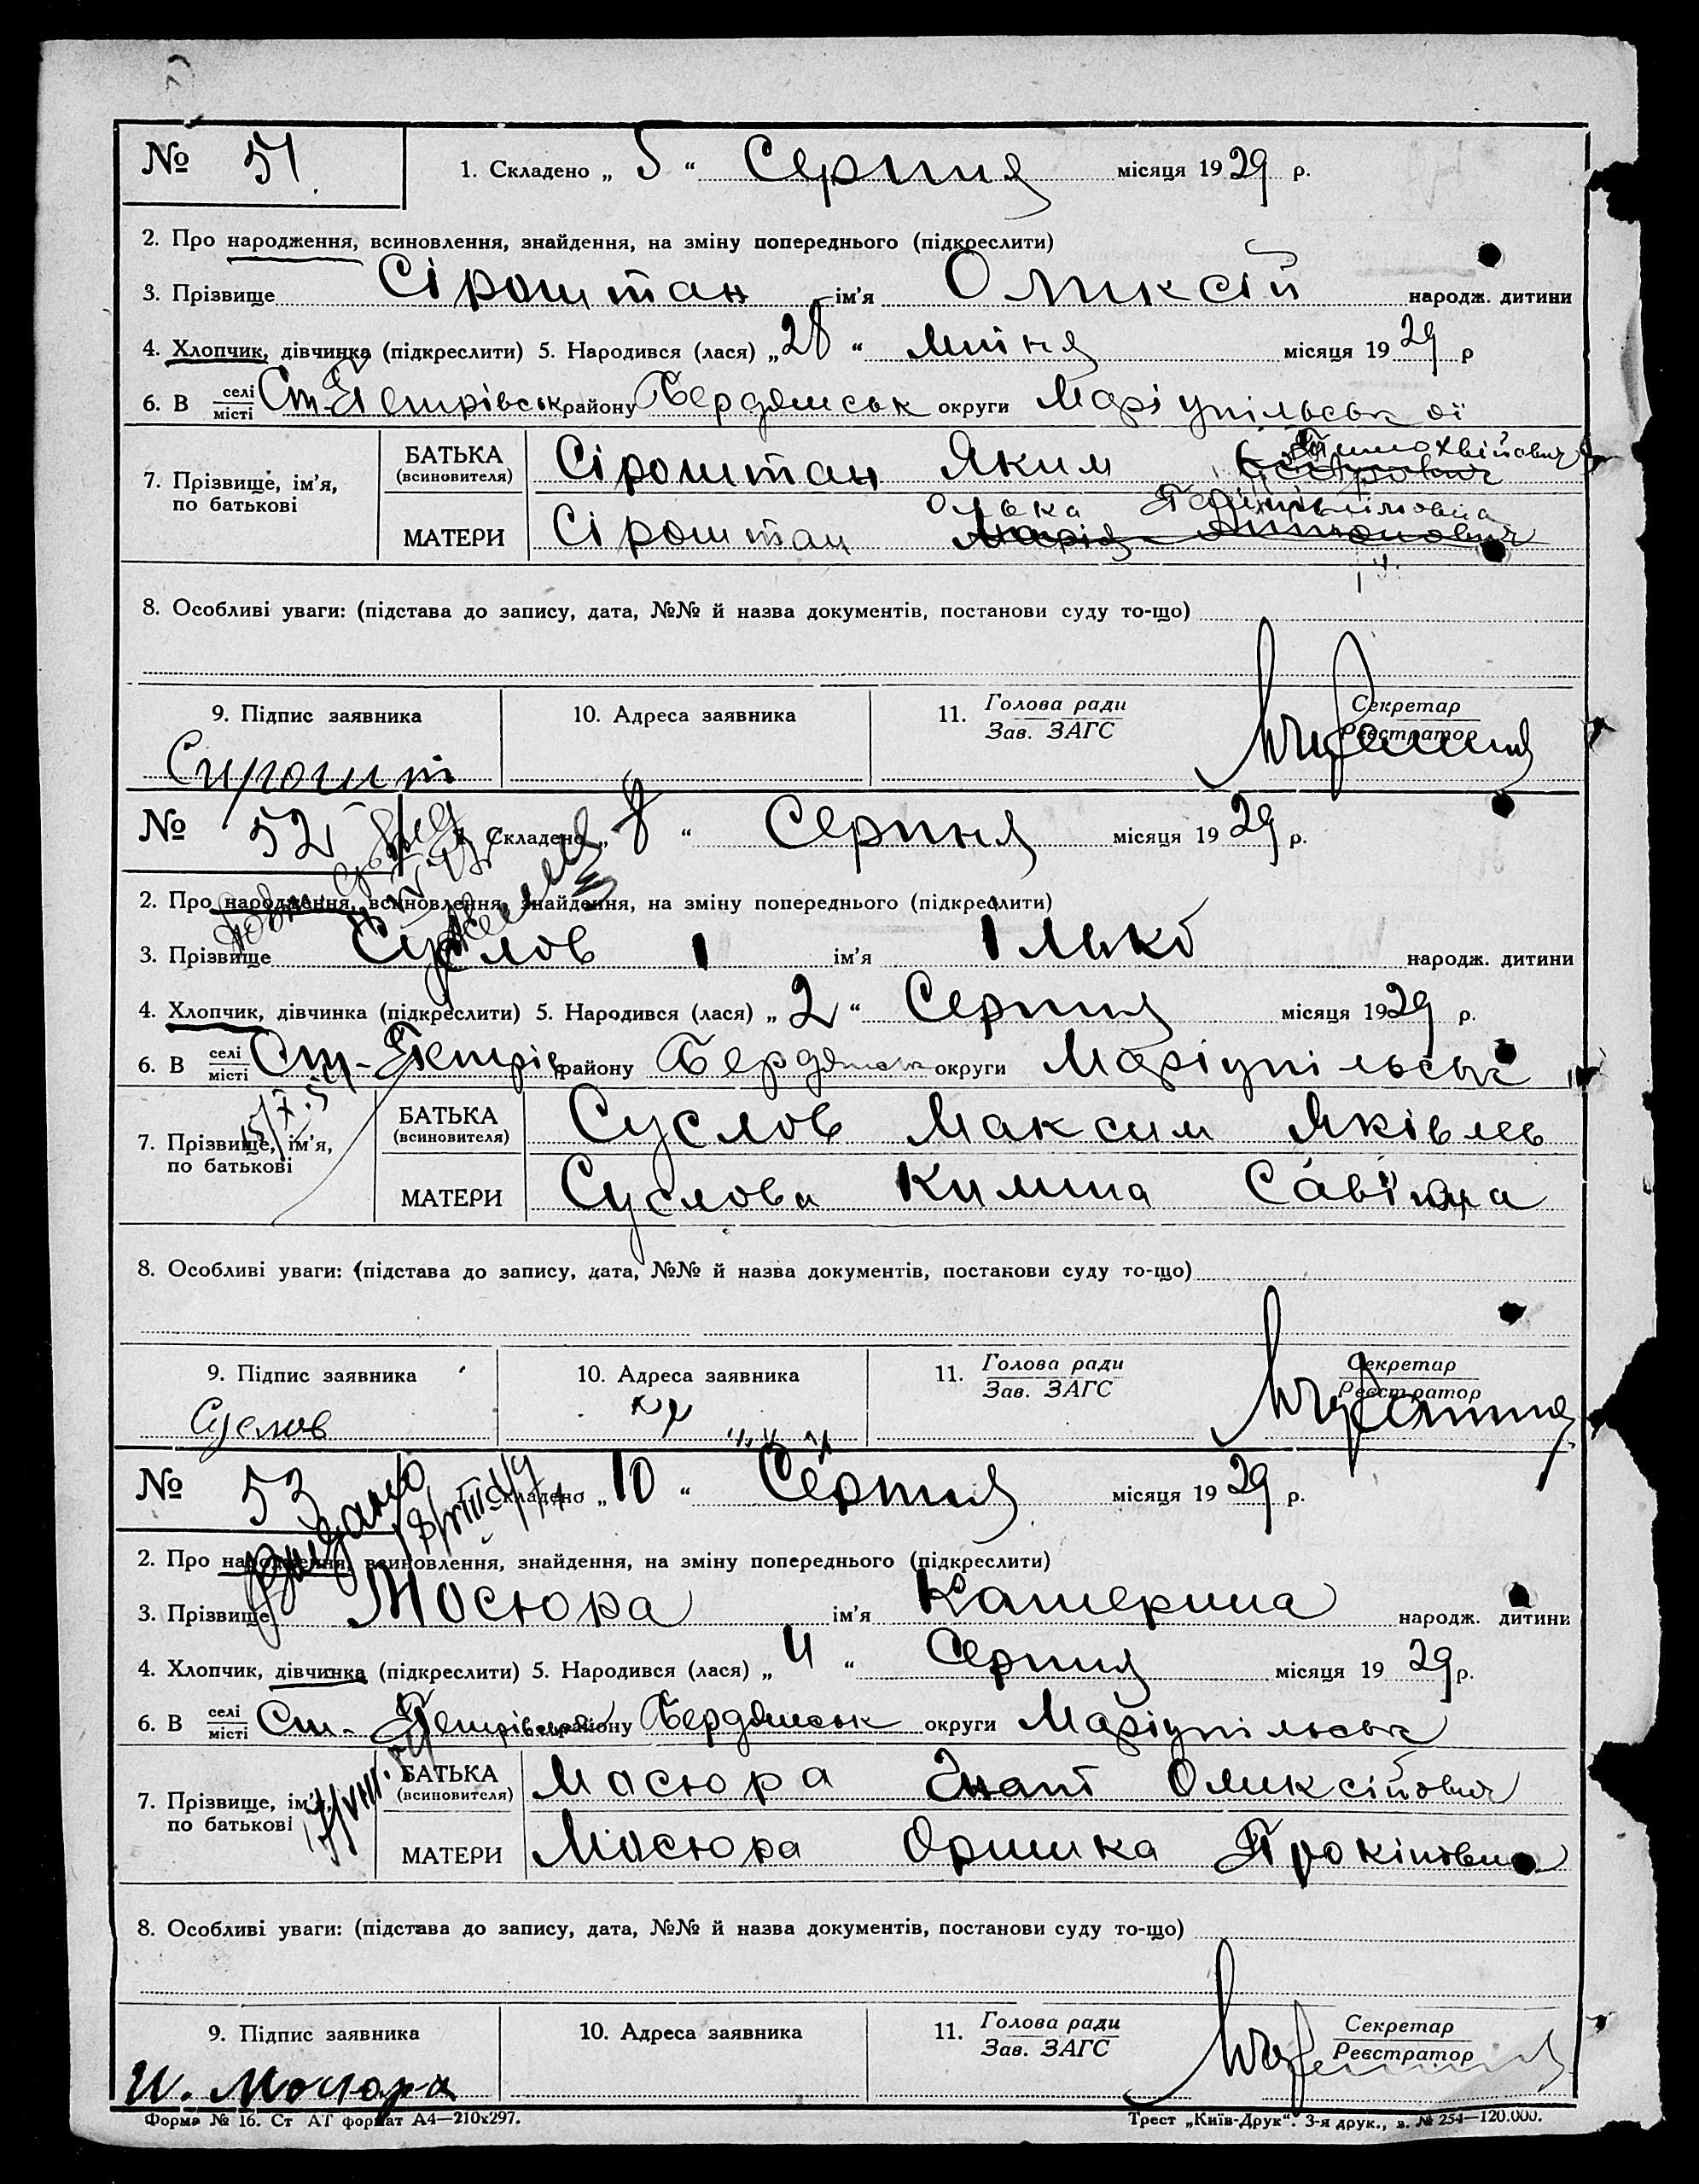 № 51. 1. Складено „ 5 “ Серпня місяця 1929 р.
2. Про народження, всиновлення, знайдення, на зміну попереднього (підкреслити)
3. Прізвище Сіроштан ім’я Оликсій народж. дитини
4. Хлопчик, дівчинка (підкреслити) 5. Народився (лася) „28“ липня місяця 1929 р
6. В селі місті Ст-Петрівськ району Бердянськ округи Маріупільської
Тимохвійович
БАТЬКА (всиновителя) Сіроштан Яким
7. Прізвище, ім’я, по батькові
Олька
МАТЕРИ Сіроштан Марія Антонович
8. Особливі уваги: (підстава до запису, дата, №№ й назва документів, постанови суду то-що)
9. Підпис заявника 10. Адреса заявника 11. Голова ради Зав. ЗАГС Секретар Реєстратор
Сирошт
№ 52 1. Складено „ 8 “ Серпня місяця 1929 р.
2. Про народження, всиновлення, знайдення, на зміну попереднього (підкреслити)
3. Прізвище Суслов ім’я Ілько народж. дитини
4. Хлопчик, дівчинка (підкреслити) 5. Народився (лася) „ 2 “ Серпня місяця 1929 р.
6. В селі місті Ст-Петрів району Бердянськ округи Маріупільськ
БАТЬКА (всиновителя) Суслов Максим Яківлев
7. Прізвище, ім’я, по батькові
МАТЕРИ Суслова Килина
8. Особливі уваги: (підстава до запису, дата, №№ й назва документів, постанови суду то-що)
9. Підпис заявника 10. Адреса заявника 11. Голова ради Зав. ЗАГС Секретар Реєстратор
Суслов
№ 53 1. Складено „ 10 “ Серпня місяця 1929 р.
Видано
2. Про народження, всиновлення, знайдення, на зміну попереднього (підкреслити)
3. Прізвище Мосюра ім’я Катерина народж. дитини
4. Хлопчик, дівчинка (підкреслити) 5. Народився (лася) „ 4 “ Серпня місяця 1929 р.
6. В селі місті Ст-Петрівськ району Бердянськ округи Маріупільськ
БАТЬКА (всиновителя) Мосюра Гнат Оликсійович
7. Прізвище, ім’я, по батькові
МАТЕРИ Мосюра Оришка Прокіповна
8. Особливі уваги: (підстава до запису, дата, №№ й назва документів, постанови суду то-що)
9. Підпис заявника 10. Адреса заявника 11. Голова ради Зав. ЗАГС Секретар Реєстратор
И. Мосюра
Форма № 16. Ст АТ формат А4—210x297. Трест „Київ-Друк“. 3-я друк., з. № 254—120.000.